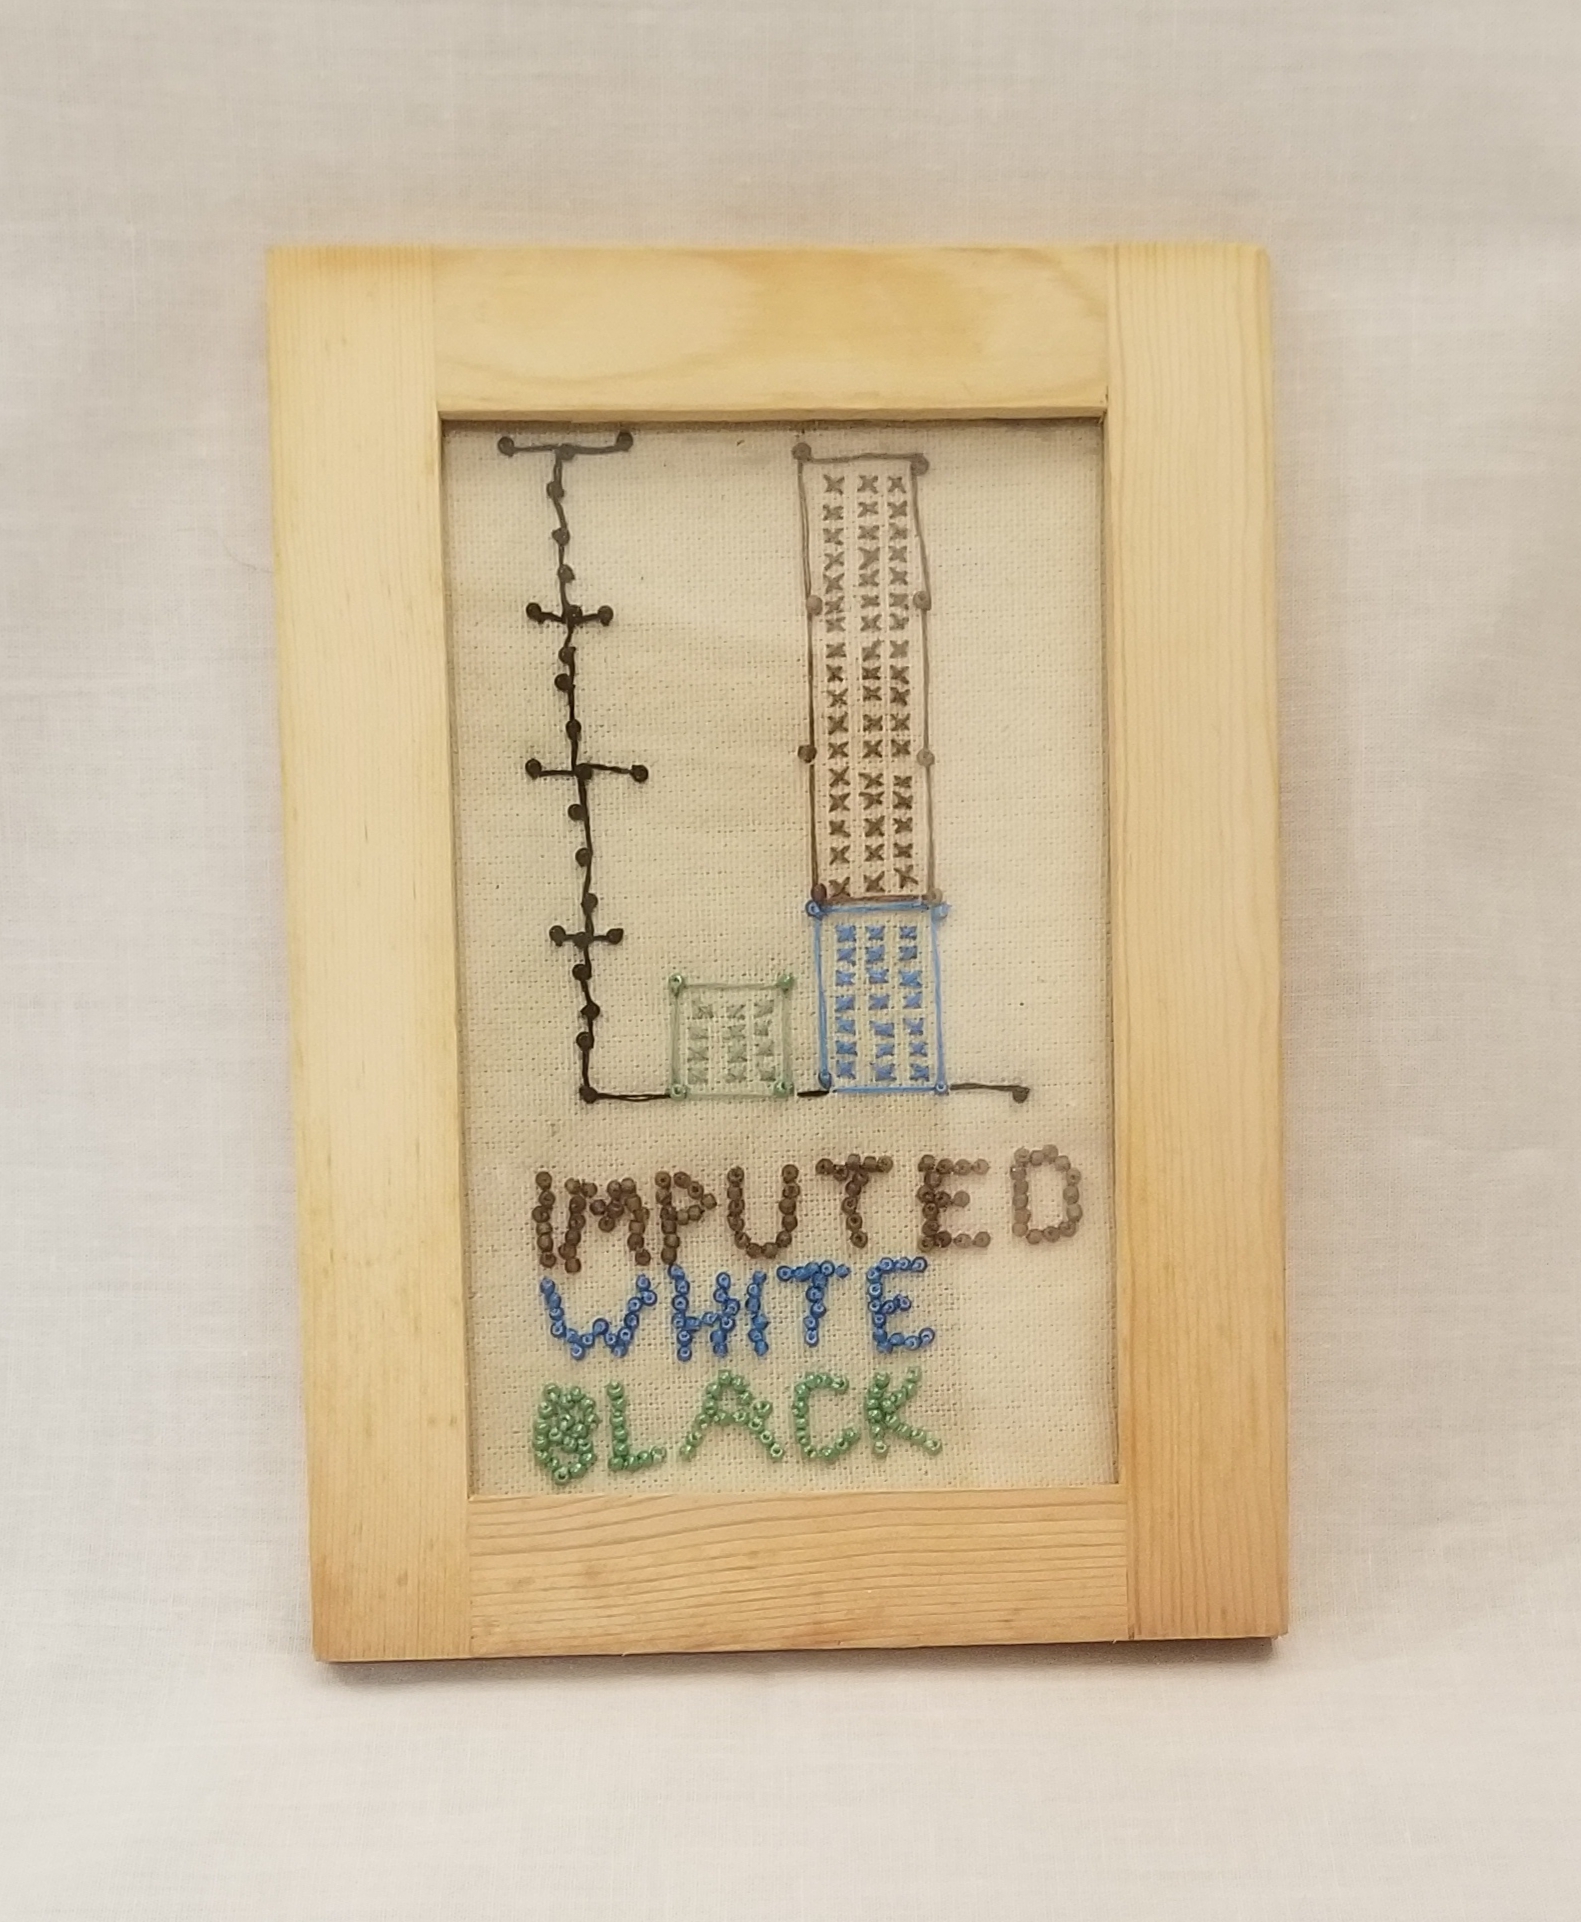 IMPUTED
WHITE
BLACK